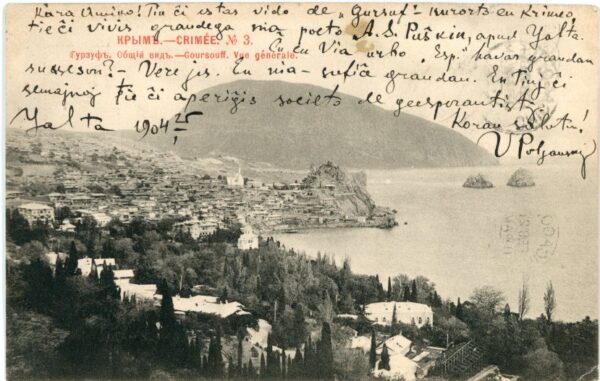 Kara Amiino! Tiu ĉi estas vido de „Gursuf" - kurorto en Krimeo,
tie ĉi vivis grandega nia poeto A. S. Puŝkin, apud Yalta.
КРЫМЪ.—CRIMÉE. № 3.
Ĉu en Via urbo „Esp." havas grandan
Гурзуфъ. Общій видъ.—Goursouff. Vue générale.
sukceson? - Ĉe ni - sufiĉe grandan. En tiuj ĉi
semajnoj tie ĉi aperiĝis societo de geesperantistoj
Yalta 1904
Koran saluton!
V Poljansky